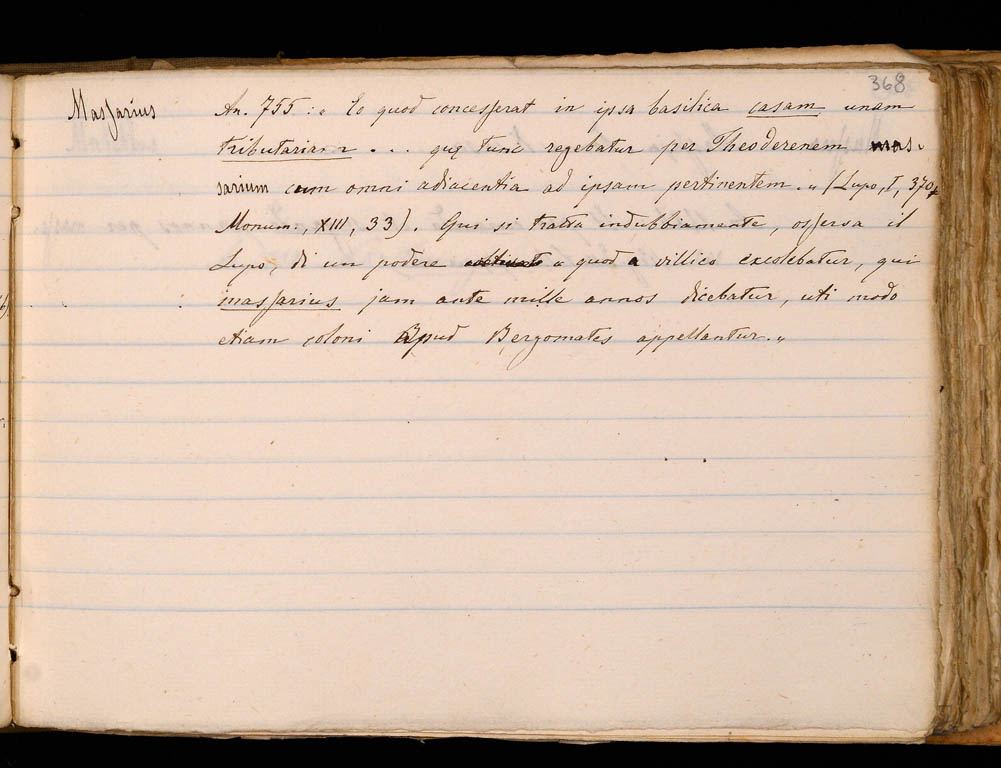 368
Massarius An. 755: « Eo quod concesserat in ipsa basilica casam unam
tributariam ... quę tunc regebatur per Theoderenem mas-
sarium cum omni adiacentia ad ipsam pertinentem. » (Lupo, I, 370,
Monum:, XIII, 33). Qui si tratta indubbiamente, osserva il
Lupo, di un podere « quod a villico excolebatur, qui
massarius jam ante mille annos dicebatur, uti modo
etiam coloni apud Bergomates appellantur. »